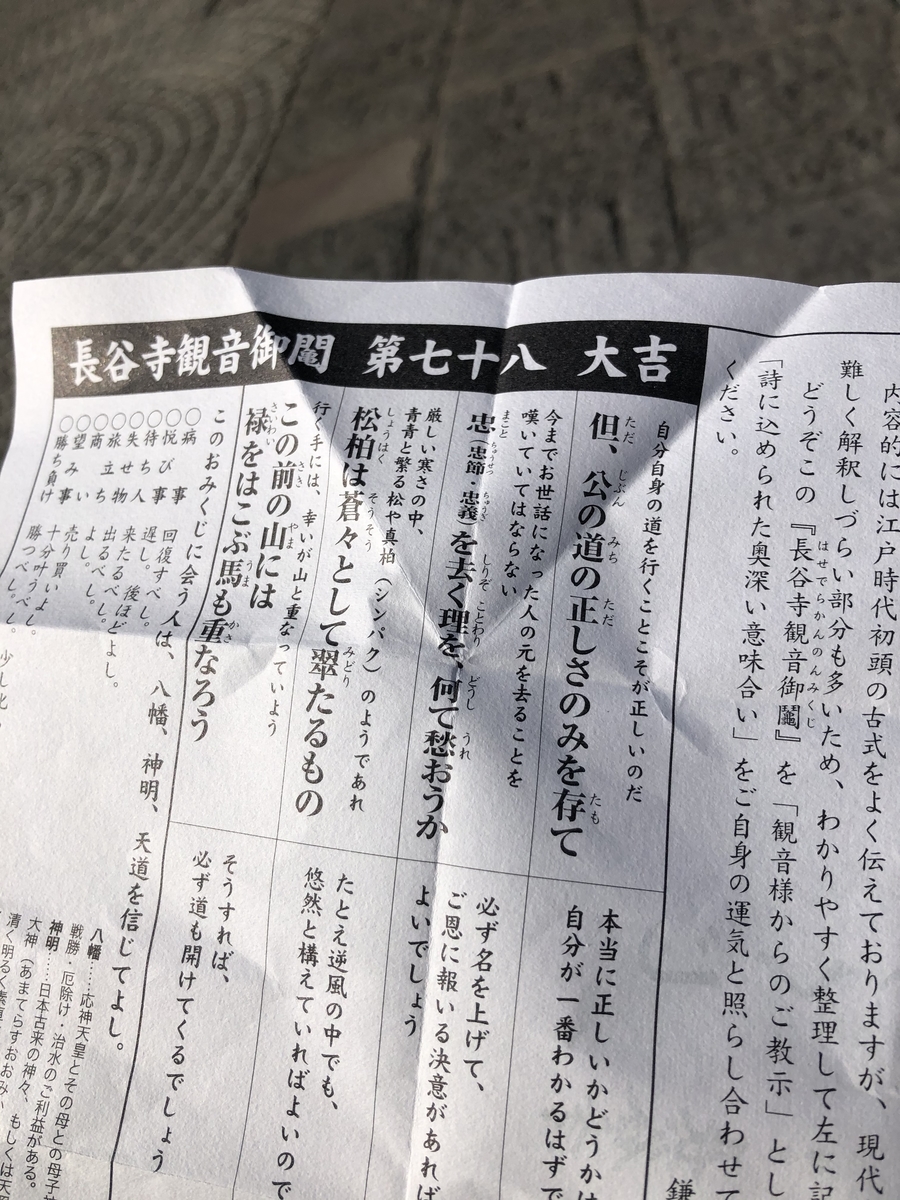 内容的には江戸時代初頭の古式をよく伝えておりますが、現代
難しく解釈しづらい部分も多いため、わかりやすく整理して左に記
どうぞこの『長谷寺観音御鬮』を「観音様からのご教示」とし
「詩に込められた奥深い意味合い」をご自身の運気と照らし合わせて
ください。
鎌
長谷寺観音御鬮 第七十八 大吉
自分自身の道を行くことこそが正しいのだ
但、公の道の正しさのみを存て
本当に正しいかどうかは
自分が一番わかるはずで
今までお世話になった人の元を去ることを
嘆いていてはならない
忠(忠節・忠義)を去く理を、何て愁おうか
必ず名を上げて、
ご恩に報いる決意があれば
よいでしょう
厳しい寒さの中、
青青と繁る松や真柏(シンパク)のようであれ
松柏は蒼々として翠たるもの
たとえ逆風の中でも、
悠然と構えていればよいので
行く手には、幸いが山と重なっていよう
この前の山には
禄をはこぶ馬も重なろう
そうすれば、
必ず道も開けてくるでしょう
このおみくじに会う人は、八幡、神明、天道を信じてよし。
○病事 回復すべし。
○悦び事 遅し。後ほどよし。
○待ち人 来たるべし。
○失せ物 出るべし。
○旅立ち よし。
○商い 売り買いよし。
○望み事 十分叶うべし。
○勝ち負け 勝つべし。
八幡……応神天皇とその母との母子神
戦勝・厄除け・治水のご利益がある。
神明……日本古来の神々、もしくは天照
大神(あまてらすおおみ
清く明るく素直